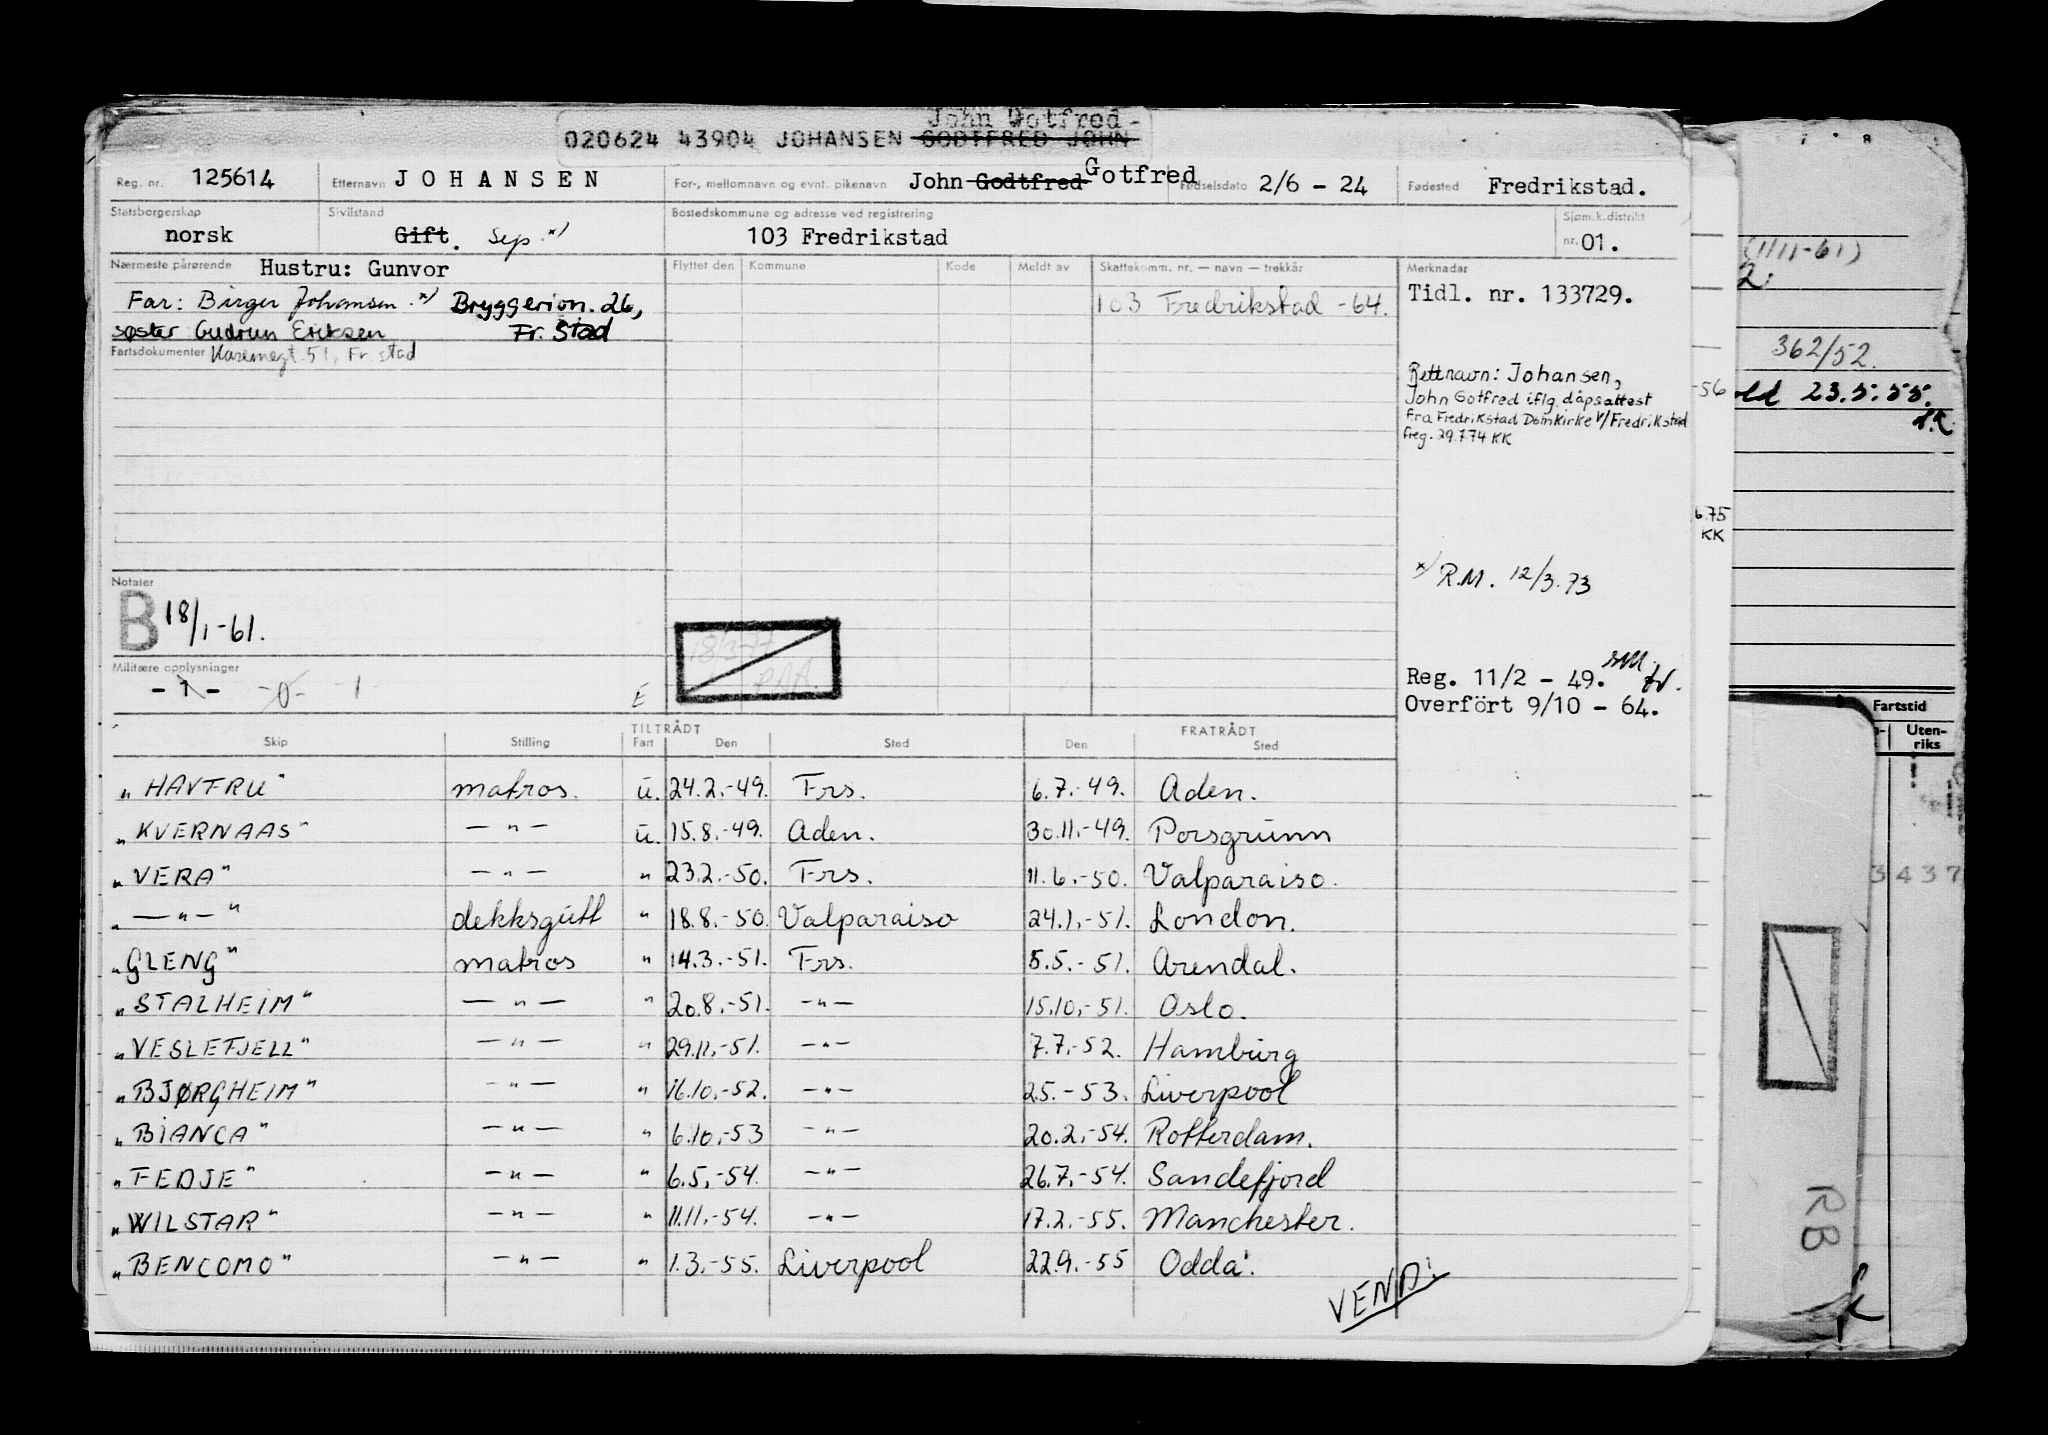 John Gotfred-
020624 43904 JOHANSEN GODTFRED JOHN
Reg. nr. 125614 Etternavn JOHANSEN For-, mellomnavn og evnt. pikenavn John Godtfred Gotfred Fødselsdato 2/6 - 24 Fødested Fredrikstad.
Statsborgerskap Sivilstand Bostedskommune og adresse ved registrering Sjøm.k.distrikt
norsk Gift. Sep. x) 103 Fredrikstad nr. 01.
Nærmeste pårørende Hustru: Gunvor Flyttet den Kommune Kode Meldt av Skattekomm. nr. — navn — trekkår Merknader
Far: Birger Johansen. x) Bryggerivn. 26, 103 Fredrikstad -64. Tidl. nr. 133729.
søster Gudrun Eriksen Fr. Stad
Fartsdokumenter 51, Fr. stad
Rett navn: Johansen,
John Gotfred iflg. dåpsattest
fra Fredrikstad Domkirke v/Fredrikstad
freg. 29.7.74 KK
x) R.M. 12/3.73
Notater
B 18/1-61.
Militære opplysninger
-1- -0- -1- E
Reg. 11/2 - 49.
Overfört 9/10 - 64.
TILTRÅDT FRATRÅDT
Skip Stilling Fart Den Sted Den Sted
"HAVTRU" matros. u. 24.2.-49. Frs. 6.7.-49. Aden.
"KVERNAAS" — " — u. 15.8.-49. Aden. 30.11.-49. Porsgrunn
"VERA" — " — " 23.2.-50. Frs. 11.6.-50. Valparaiso.
" — " — " dekksgutt " 18.8.-50. Valparaiso 24.1.-51. London.
"GLENG" matros " 14.3.-51. Frs. 5.5.-51. Arendal.
"STALHEIM" — " — " 20.8.-51. — " — 15.10.-51. Oslo.
"VESLEFJELL" — " — " 29.11.-51. — " — 7.7.-52. Hamburg
"BJØRGHEIM" — " — " 16.10.-52. — " — 2.5.-53. Liverpool
"BIANCA" — " — " 6.10.-53 — " — 20.2.-54. Rotterdam.
"FEDJE" — " — " 6.5.-54. — " — 26.7.-54. Sandefjord
"WILSTAR" — " — " 11.11.-54. — " — 17.2.-55. Manchester.
"BENCOMO" — " — " 1.3.-55. Liverpool 22.9.-55 Odda.
VEND!
(1/11-61)
2.
362/52.
-56
old 23.5.55.
6.75
KK
Fartstid
Uten-
riks
3437
RB